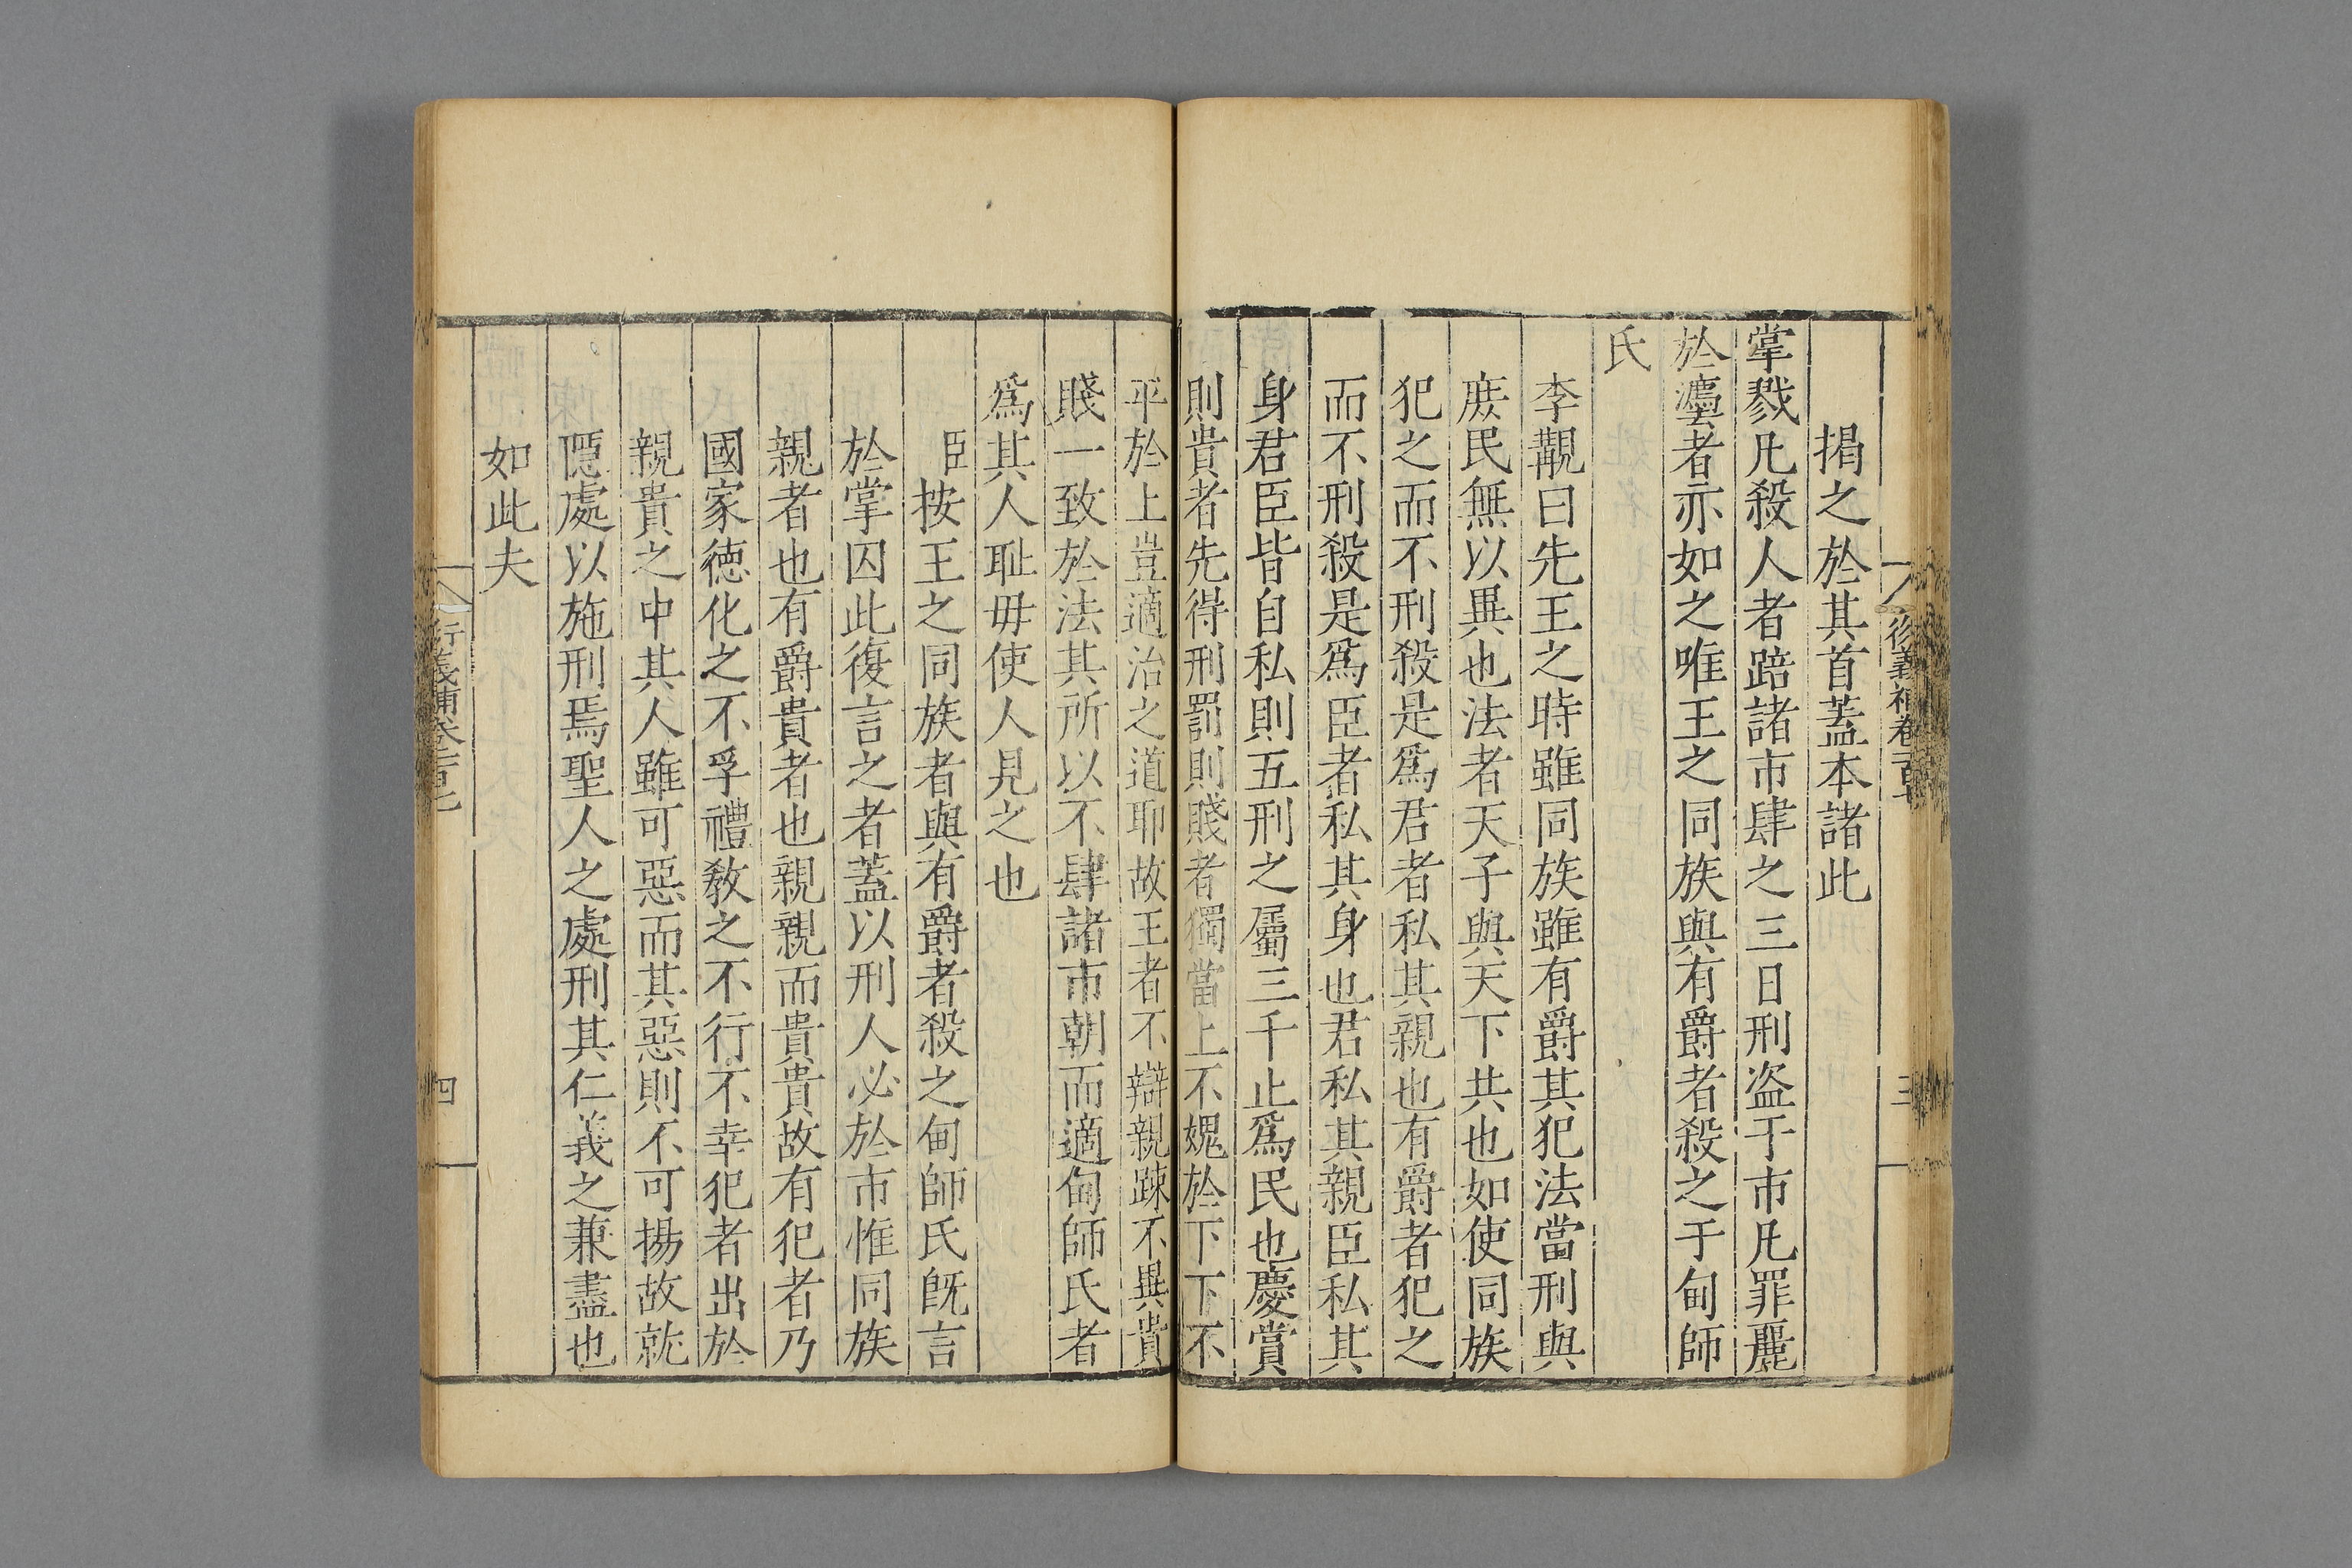 揭之於其首蓋本諸此
掌戮凡殺人者踣諸市肆之三日刑盗于市凡罪麗
於灋者亦如之唯王之同族與有爵者殺之于甸師
氏
李覯曰先王之時雖同族雖有爵其犯法當刑與
庶民無以異也法者天子與天下共也如使同族
犯之而不刑殺是爲君者私其親也有爵者犯之
而不刑殺是爲臣者私其身也君私其親臣私其
身君臣皆自私則五刑之屬三千止爲民也慶賞
則貴者先得刑罰則賤者獨當上不媿於下下不
平於上豈適治之道耶故王者不辯親踈不異貴
賤一致於法其所以不肆諸市朝而適甸師氏者
爲其人耻毋使人見之也
臣按王之同族者與有爵者殺之甸師氏旣言
於掌囚此復言之者蓋以刑人必於市惟同族
親者也有爵貴者也親親而貴貴故有犯者乃
國家德化之不孚禮敎之不行不幸犯者出於
親貴之中其人雖可惡而其惡則不可揚故就
隱處以施刑焉聖人之處刑其仁義之兼盡也
如此夫
行義補卷一百七
四